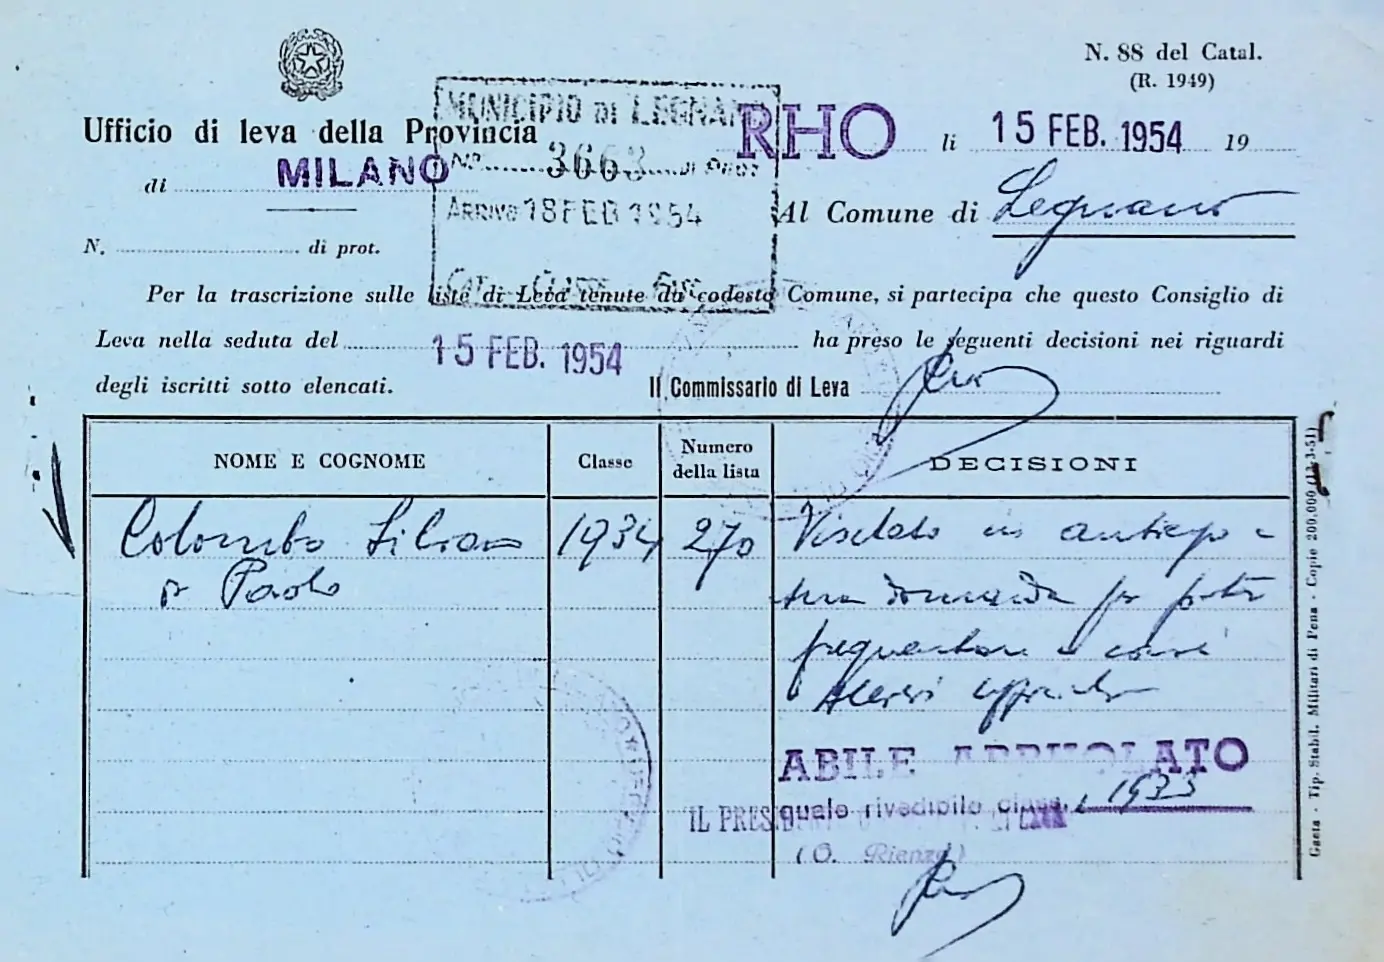 N. 88 del Catal.
(R. 1949)
MUNICIPIO DI LEGNANO
Ufficio di leva della Provincia
RHO li 15 FEB. 1954 19
di MILANO
No. 3663 di Prot.
Arrivo 18 FEB 1954
Al Comune di Legnano
N. di prot.
Per la trascrizione sulle liste di Leva tenute da codesto Comune, si partecipa che questo Consiglio di
Leva nella seduta del 15 FEB. 1954 ha preso le seguenti decisioni nei riguardi
degli iscritti sotto elencati.
Il Commissario di Leva
NOME E COGNOME Classe Numero della lista DECISIONI
Colombo Silvano 1934 270 Visitato in anticipo a
di Paolo
sua domanda per poter
frequentare i corsi
Allievi
ABILE ARRUOLATO
quale rivedibile classe 1933
IL PRESIDENTE
(O. Rienzo)
Gaeta - Tip. Stabil. Militari di Pena - Copie 200.000 (12-3-51)